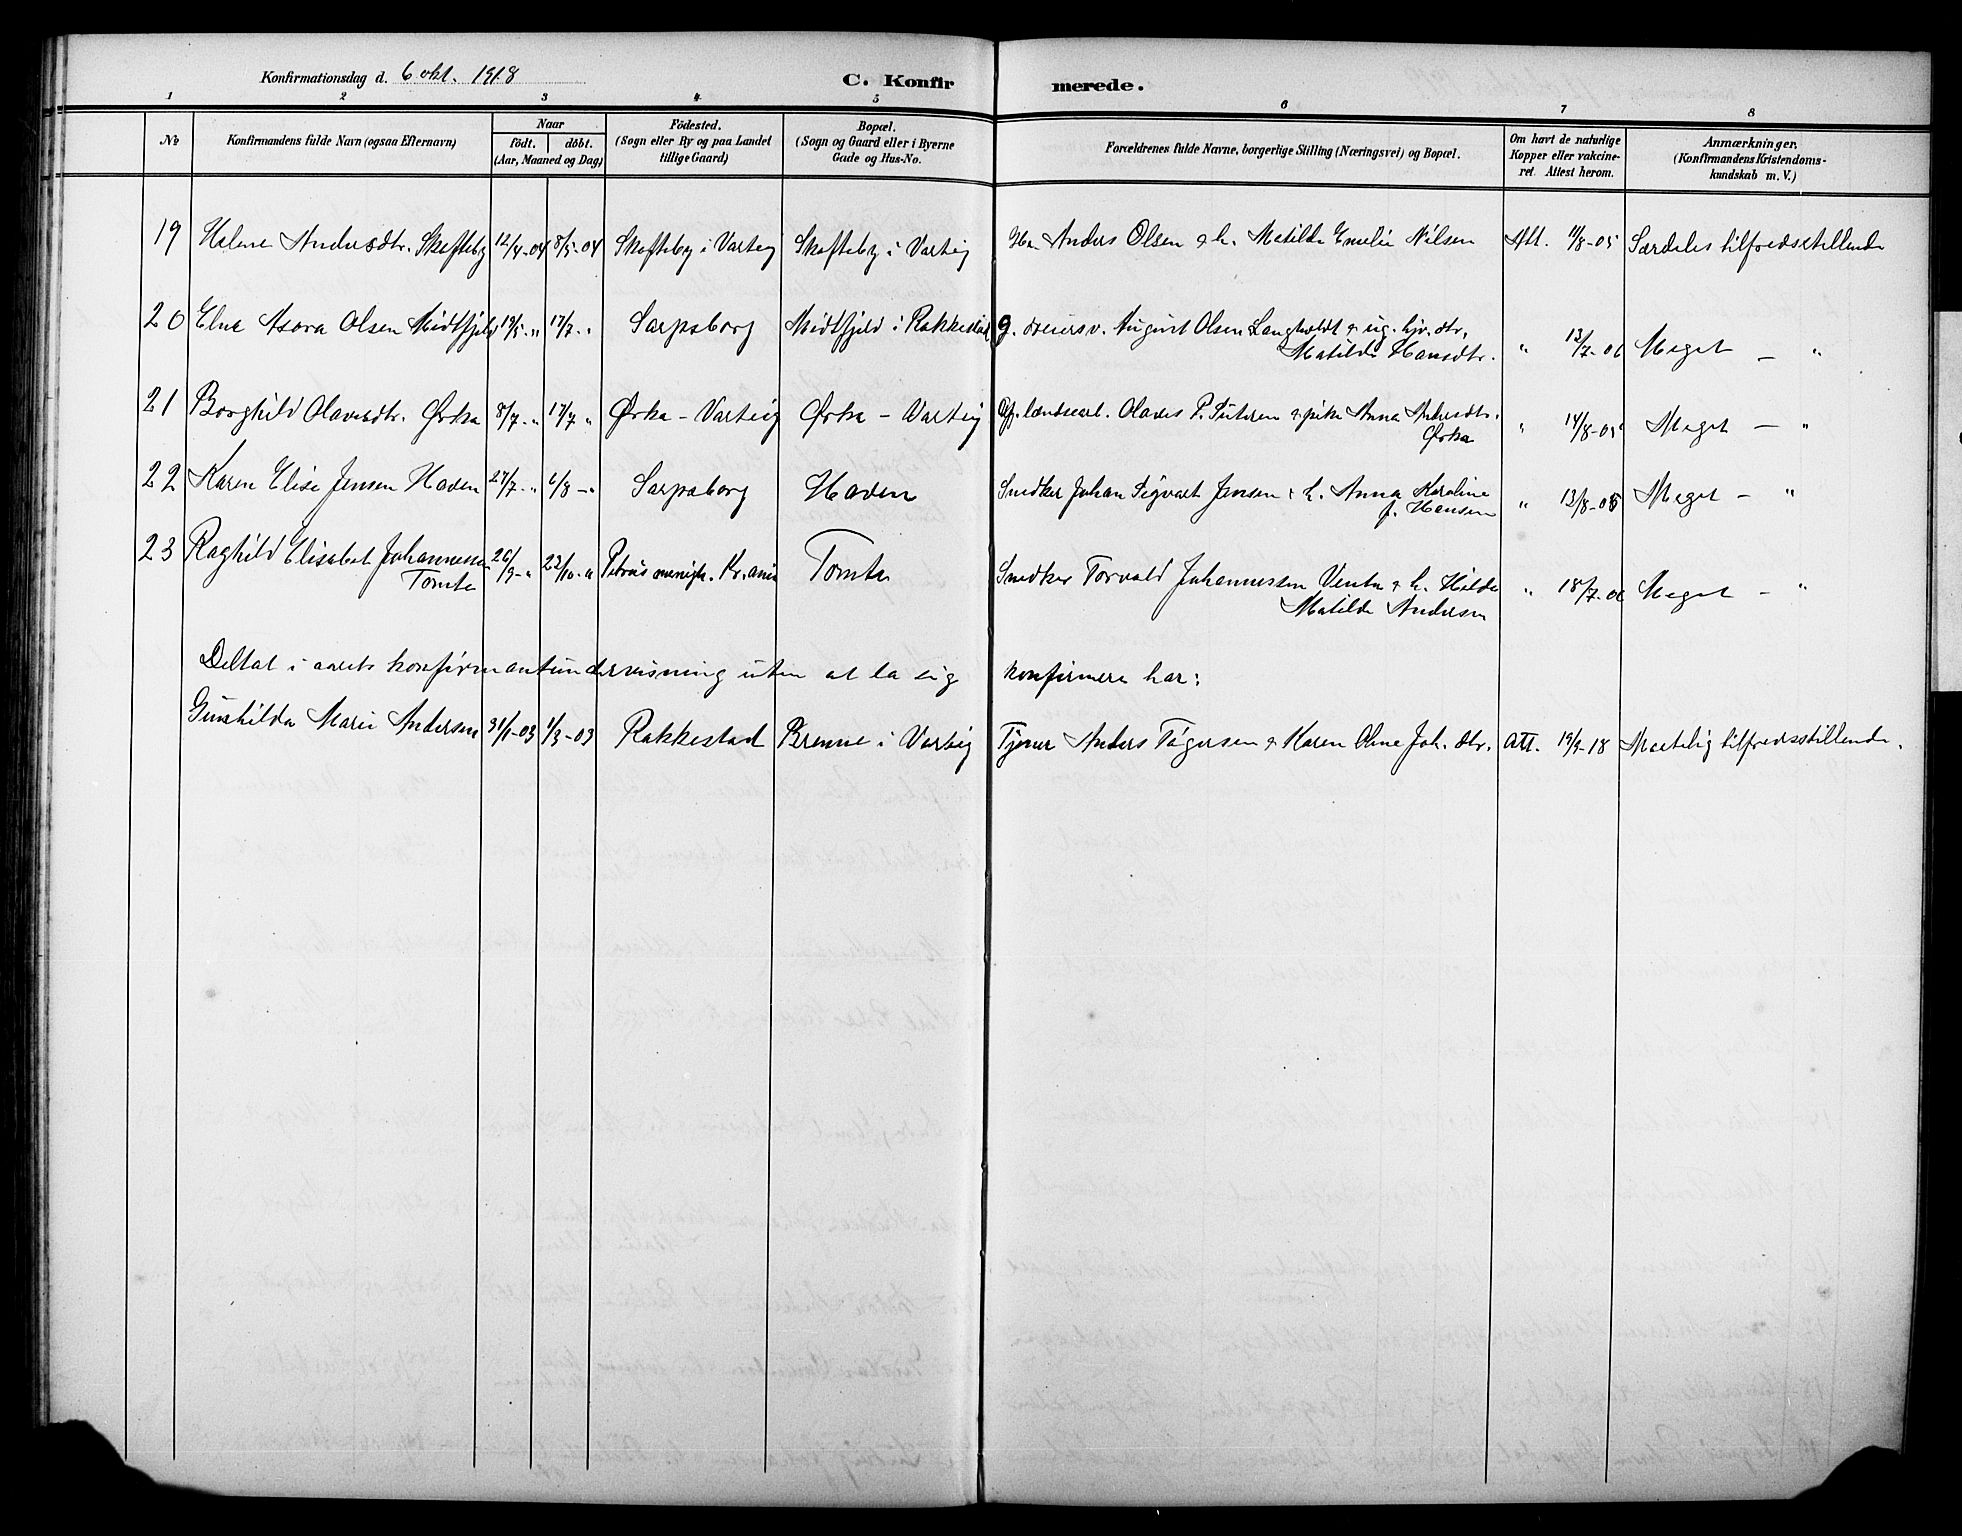 Konfirmationsdag d. 6 okt. 1918
C. Konfirmerede.
1 2 3 4 5 6 7 8
No
Konfirmandens fulde Navn (ogsaa Efternavn)
Naar
födt. döbt.
(Aar, Maaned og Dag)
Födested.
(Sogn eller By og paa Landet
tillige Gaard)
Bopæl.
(Sogn og Gaard eller i Byerne
Gade og Hus-No.
Forældrenes fulde Navne, borgerlige Stilling (Næringsvei) og Bopæl.
Om havt de naturlige
Kopper eller vakcine-
ret. Attest herom.
Anmærkninger.
(Konfirmandens Kristendoms-
kundskab m. V.)
19 Helene Andersdtr. Skofteby 12/4-04 8/5-04 Skofteby i Varteig Skofteby i Varteig Anders Olsen & h. Matilde Emelie Nilsen Att. 11/8-05 Særdeles tilfredsstillende
20 Elna Asora Olsen Midtfjeld 19/5-" 17/7-" Sarpsborg Midtfjeld i Rakkestad g. August Olsen Langholdt & ug.
Matilde Hansdtr. " 13/7-06 Meget — "
21 Borghild Olavesdtr. Ørka 8/7-" 17/7 " Ørka - Varteig Ørka - Varteig Olaves P. & pike Anna
Ørka " 14/8-05 Meget — "
22 Karen Elise Jensen Haven 27/7-" 6/8-" Sarpsborg Haven Snedker Johan Sigvart Jensen & h. Anna Karoline
f. Hansen " 13/8-05 Meget — "
23 Raghild Elisabet Johannessen
Tomta 26/9-" 23/10-" Petrus menigh. Kr.ania Tomta Snedker Torvald Johannessen Venta & h. Hilda
Matilde Andersen " 18/7-06 Meget — "
Deltat i aarets konfirmantundervisning uten at la sig konfirmere har:
Gunhilda Marie Andersen 31/1-03 1/3-03 Rakkestad Brenne i Varteig Tjener Anders Tøgersen & Karen Oline Joh. dtr. Att. 19/9-18 Maatelig tilfredsstillende.